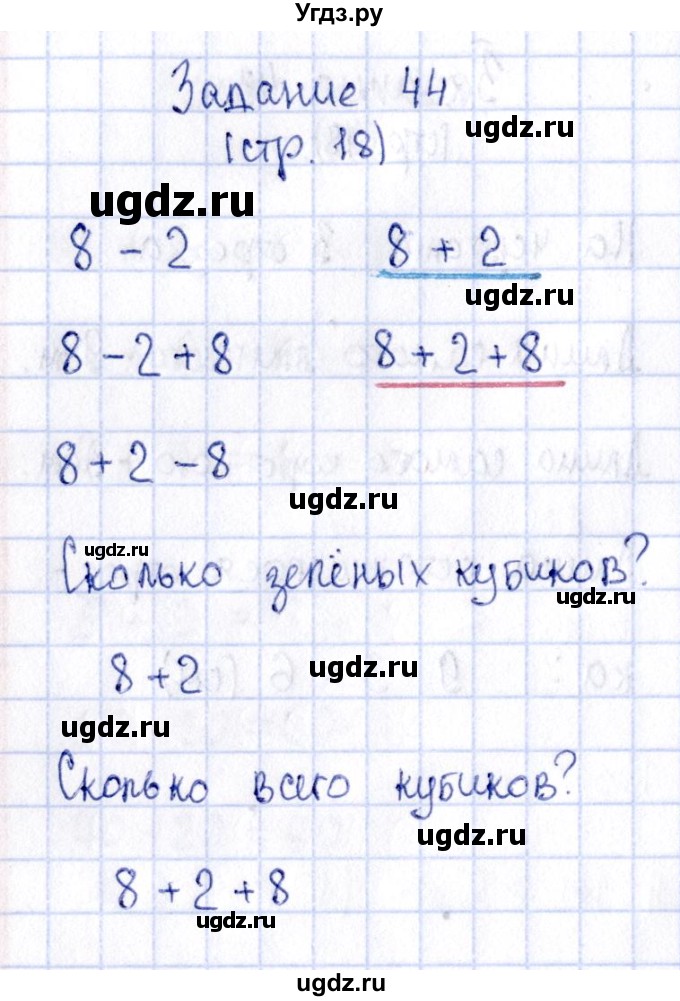 Угдз.ру
Задание 44
ugdz.ru
(стр. 18)
ugdz.ru
8 - 2 8 + 2
ugdz.ru
8 - 2 + 8 8 + 2 + 8
8 + 2 - 8
ugdz.ru
ugdz.ru
Сколько зелёных кубиков?
ugdz.ru
8 + 2
ugdz.ru
ugdz.ru
Сколько всего кубиков?
ugdz.ru
8 + 2 + 8
ugdz.ru
ugdz.ru